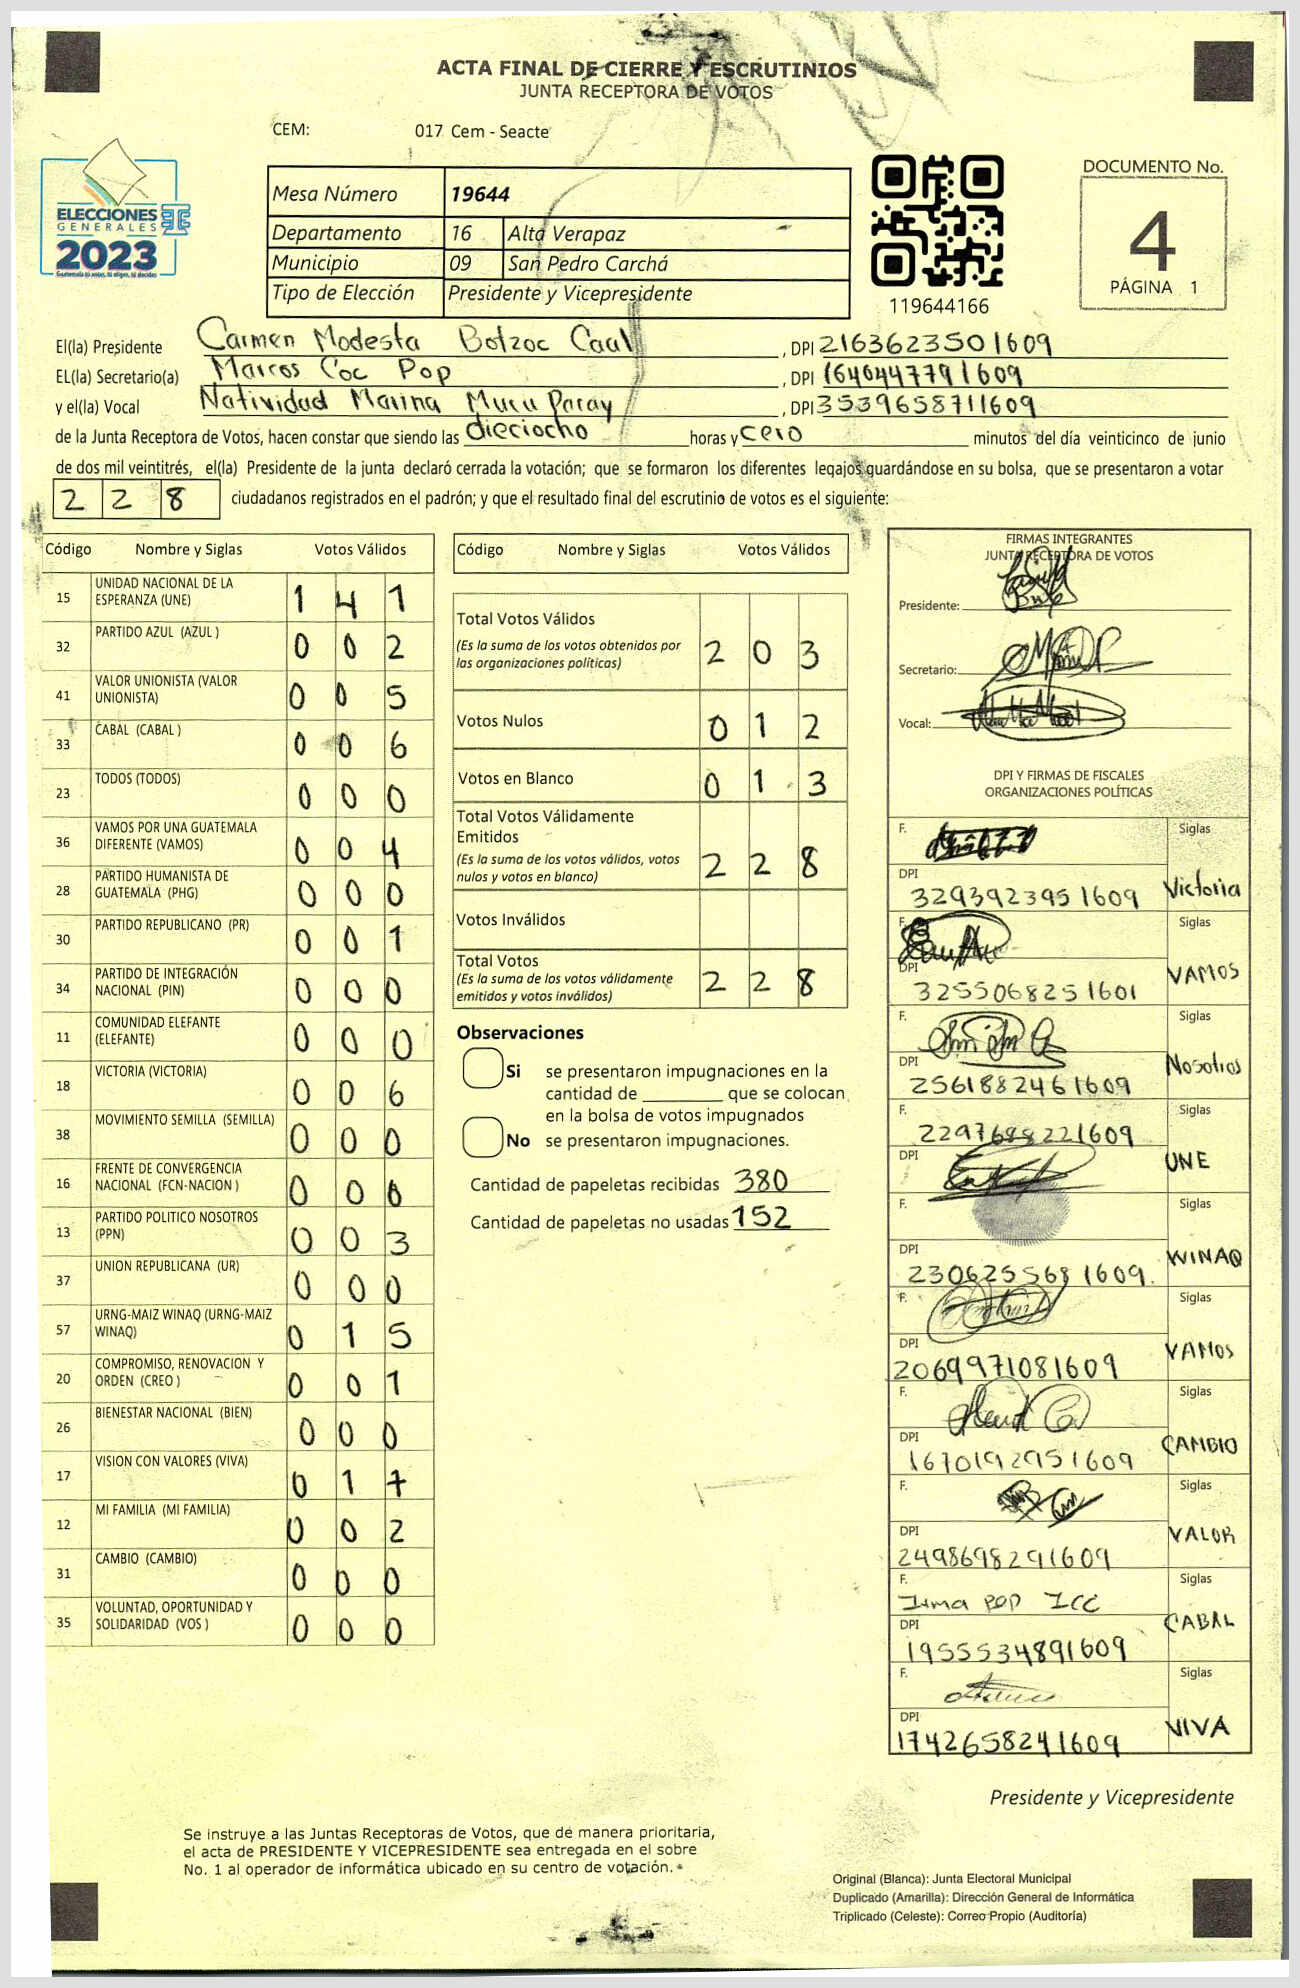 ACTA FINAL DE CIERRE Y ESCRUTINIOS
JUNTA RECEPTORA DE VOTOS
CEM: 017 Cem - Seacte
ELECCIONES
GENERALES
2023
Mesa Número 19644
Departamento 16 Alta Verapaz
Municipio 09 San Pedro Carchá
Tipo de Elección Presidente y Vicepresidente
119644166
DOCUMENTO No.
4
PÁGINA 1
El(la) Presidente Carmen Modesta Botzoc Caal, DPI 2163623501609
EL(la) Secretario(a) Marcos Coc Pop, DPI 1640447791609
y el(la) Vocal Natividad Marina Mucu, DPI 3539658711609
de la Junta Receptora de Votos, hacen constar que siendo las dieciocho horas y cero minutos del día veinticinco de junio
de dos mil veintitrés, el(la) Presidente de la junta declaró cerrada la votación; que se formaron los diferentes legajos guardándose en su bolsa, que se presentaron a votar
228 ciudadanos registrados en el padrón; y que el resultado final del escrutinio de votos es el siguiente:
Código Nombre y Siglas Votos Válidos
15 UNIDAD NACIONAL DE LA ESPERANZA (UNE) 1 4 1
32 PARTIDO AZUL (AZUL ) 0 0 2
41 VALOR UNIONISTA (VALOR UNIONISTA) 0 0 5
33 CABAL (CABAL ) 0 0 6
23 TODOS (TODOS) 0 0 0
36 VAMOS POR UNA GUATEMALA DIFERENTE (VAMOS) 0 0 4
28 PARTIDO HUMANISTA DE GUATEMALA (PHG) 0 0 0
30 PARTIDO REPUBLICANO (PR) 0 0 1
34 PARTIDO DE INTEGRACIÓN NACIONAL (PIN) 0 0 0
11 COMUNIDAD ELEFANTE (ELEFANTE) 0 0 0
18 VICTORIA (VICTORIA) 0 0 6
38 MOVIMIENTO SEMILLA (SEMILLA) 0 0 0
16 FRENTE DE CONVERGENCIA NACIONAL (FCN-NACION ) 0 0 0
13 PARTIDO POLITICO NOSOTROS (PPN) 0 0 3
37 UNION REPUBLICANA (UR) 0 0 0
57 URNG-MAIZ WINAQ (URNG-MAIZ WINAQ) 0 1 5
20 COMPROMISO, RENOVACION Y ORDEN (CREO ) 0 0 1
26 BIENESTAR NACIONAL (BIEN) 0 0 0
17 VISION CON VALORES (VIVA) 0 1 7
12 MI FAMILIA (MI FAMILIA) 0 0 2
31 CAMBIO (CAMBIO) 0 0 0
35 VOLUNTAD, OPORTUNIDAD Y SOLIDARIDAD (VOS ) 0 0 0
Código Nombre y Siglas Votos Válidos
Total Votos Válidos
(Es la suma de los votos obtenidos por las organizaciones políticas) 2 0 3
Votos Nulos 0 1 2
Votos en Blanco 0 1 3
Total Votos Válidamente Emitidos
(Es la suma de los votos válidos, votos nulos y votos en blanco) 2 2 8
Votos Inválidos
Total Votos
(Es la suma de los votos válidamente emitidos y votos inválidos) 2 2 8
Observaciones
Si se presentaron impugnaciones en la
cantidad de ________ que se colocan
en la bolsa de votos impugnados
No se presentaron impugnaciones.
Cantidad de papeletas recibidas 380
Cantidad de papeletas no usadas 152
FIRMAS INTEGRANTES
JUNTA RECEPTORA DE VOTOS
Presidente:
Secretario:
Vocal:
DPI Y FIRMAS DE FISCALES
ORGANIZACIONES POLÍTICAS
F. Siglas
DPI 3293923951609 Victoria
F. Siglas
DPI 3255068251601 VAMOS
F. Siglas
DPI 2561882461609 Nosotros
F. Siglas
2297688221609
DPI UNE
F. Siglas
DPI 2306255681609. WINAQ
F. Siglas
DPI 2069971081609 VAMOS
F. Siglas
DPI 1670192951609 CAMBIO
F. Siglas
DPI 2498698291609 VALOR
F. Irma POP ICC Siglas
DPI 1955534891609 CABAL
F. Siglas
DPI 1742658241609 VIVA
Presidente y Vicepresidente
Se instruye a las Juntas Receptoras de Votos, que de manera prioritaria,
el acta de PRESIDENTE Y VICEPRESIDENTE sea entregada en el sobre
No. 1 al operador de informática ubicado en su centro de votación.
Original (Blanca): Junta Electoral Municipal
Duplicado (Amarilla): Dirección General de Informática
Triplicado (Celeste): Correo Propio (Auditoría)